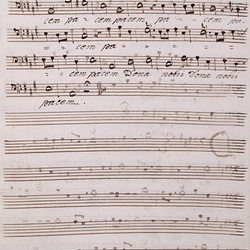 cem pa - cem pacem pa - cem pa -
- - cem pa - - - -
- - cem pacem Dona nobis Dona nobis
pacem.